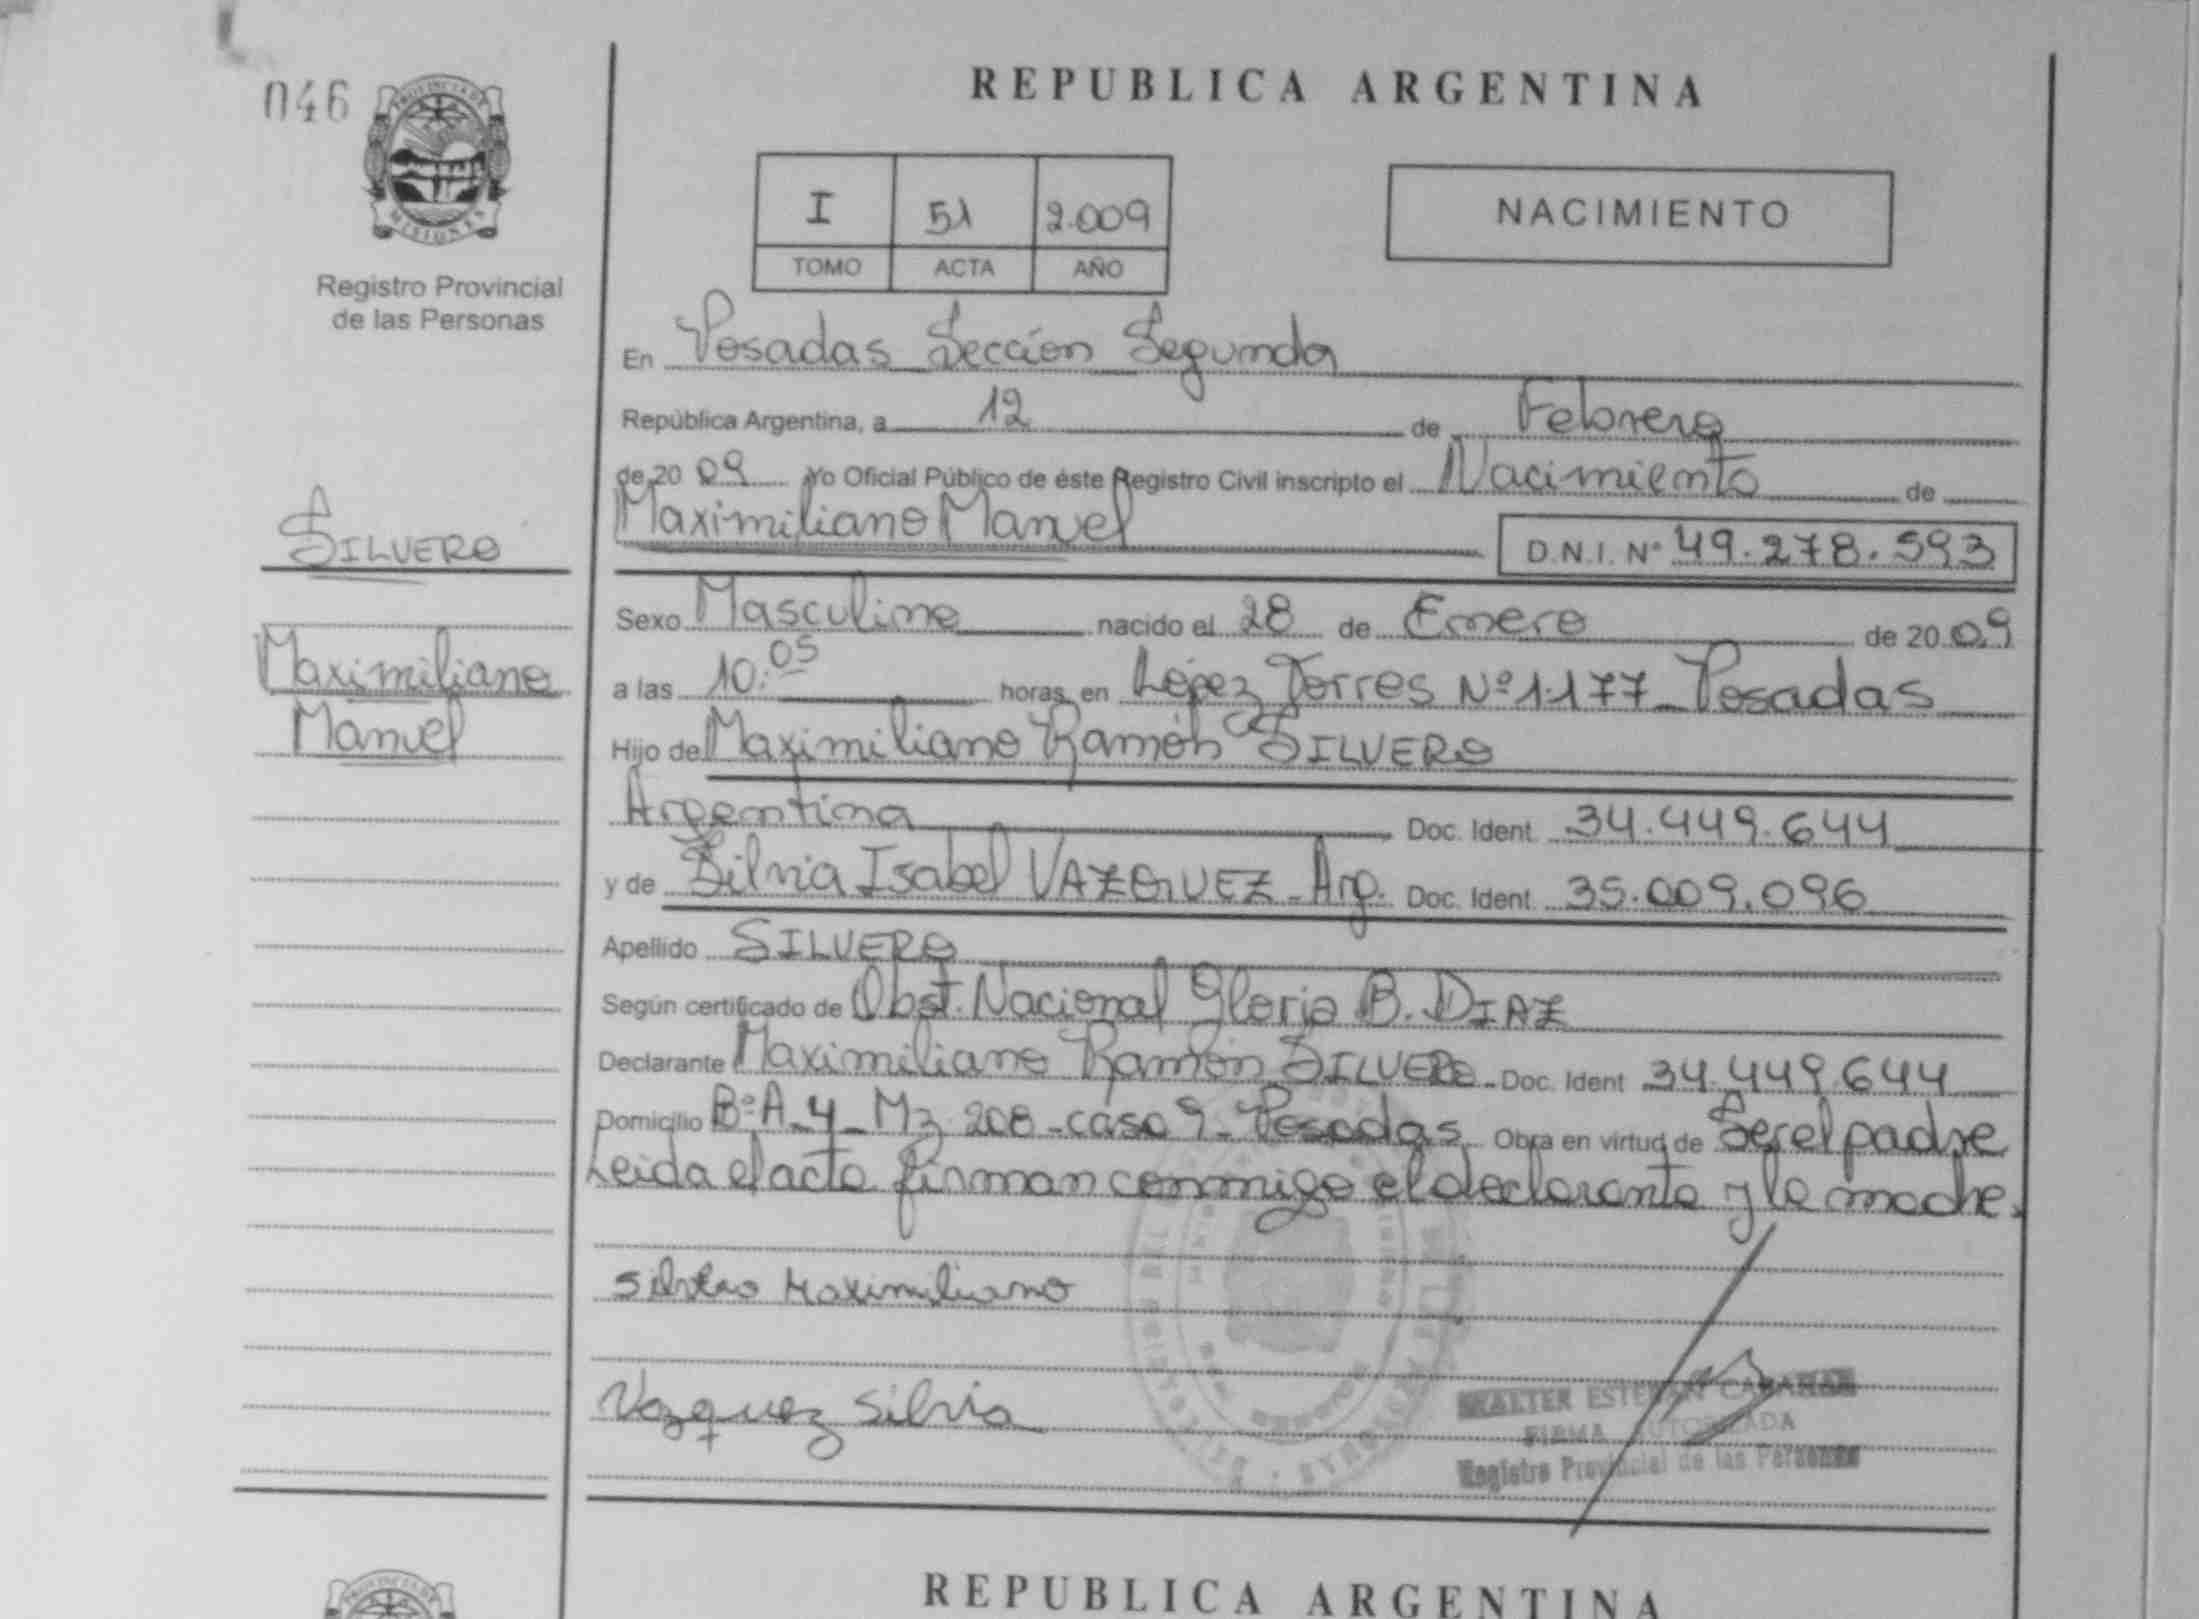 046
PROVINCIA DE
MISIONES
Registro Provincial
de las Personas
SILVERO
Maximiliano
Manuel
REPUBLICA ARGENTINA
I 51 2.009
TOMO ACTA AÑO
NACIMIENTO
En Posadas Sección Segunda
República Argentina, a 12 de Febrero
de 20 09 Yo Oficial Público de éste Registro Civil inscripto el Nacimiento de
Maximiliano Manuel D.N.I. Nº 49.278.593
Sexo Masculino nacido el 28 de Enero de 20 09
a las 10:05 horas, en López Torres Nº 1177 - Posadas
Hijo de Maximiliano Ramón SILVERO
Argentina Doc. Ident. 34.449.644
y de Silvia Isabel VAZQUEZ - Arg. Doc. Ident. 35.009.096
Apellido SILVERO
Según certificado de Obst. Nacional Gloria B. DIAZ
Declarante Maximiliano Ramón SILVERO - Doc. Ident 34.449.644
Domicilio Bº A-4 - Mz 208 - casa 9 - Posadas Obra en virtud de Ser el padre
Leida el acta firman conmigo el declarante y la madre.
Silvero Maximiliano
Vazquez Silvia
WALTER ESTEBAN
FIRMA AUTORIZADA
Registro Provincial de las Personas
REPUBLICA ARGENTINA
PROVINCIA DE